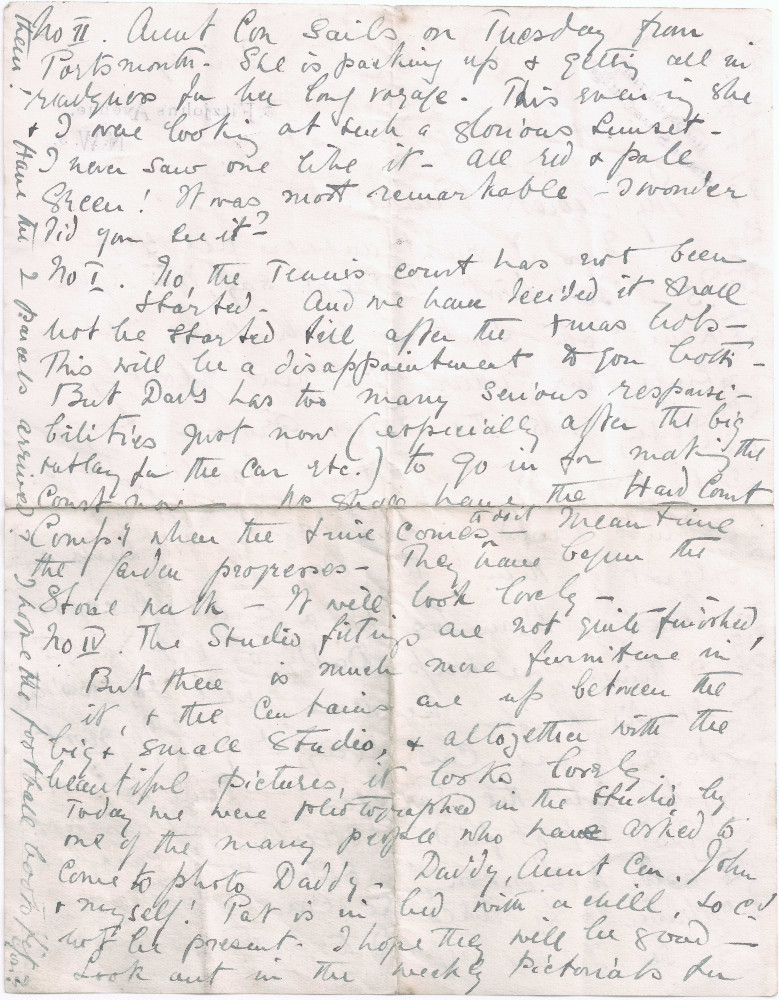 No II. Aunt Con Sails on Tuesday from
Portsmouth. She is packing up & getting all in
readyness for her long voyage. This evening she
& I were looking at such a glorious Sunset -
I never saw one like it - all red & pale
Green! It was most remarkable - I wonder
Did you see it?
No I. No, the Tennis court has not been
Started. And we have decided it shall
not be started till after the Xmas hols -
This will be a disappointment to you both -
But Dad's has too many serious responsi-
bilities just now (especially after the big
outlay for the car etc.) to go in for making the
Court now - We shall have the Hard Court
Comp:y when the time comes to do it - Meantime
the Garden progresses - They have begun the
Stone path - It will look lovely -
No IV. The Studio fittings are not quite finished,
But there is much more furniture in
it, & the Curtains are up between the
big & small Studio, & altogether with the
beautiful pictures, it looks lovely.
Today we were photographed in the Studio, by
one of the many people who have asked to
Come to photo Daddy - Daddy, Aunt Con, John
& myself! Pat is in bed with a chill, so c'd
not be present. I hope they will be good -
Look out in the Weekly Pictorials for
them!
& Have the 2 Parcels arrived? I hope the football boots fit you?